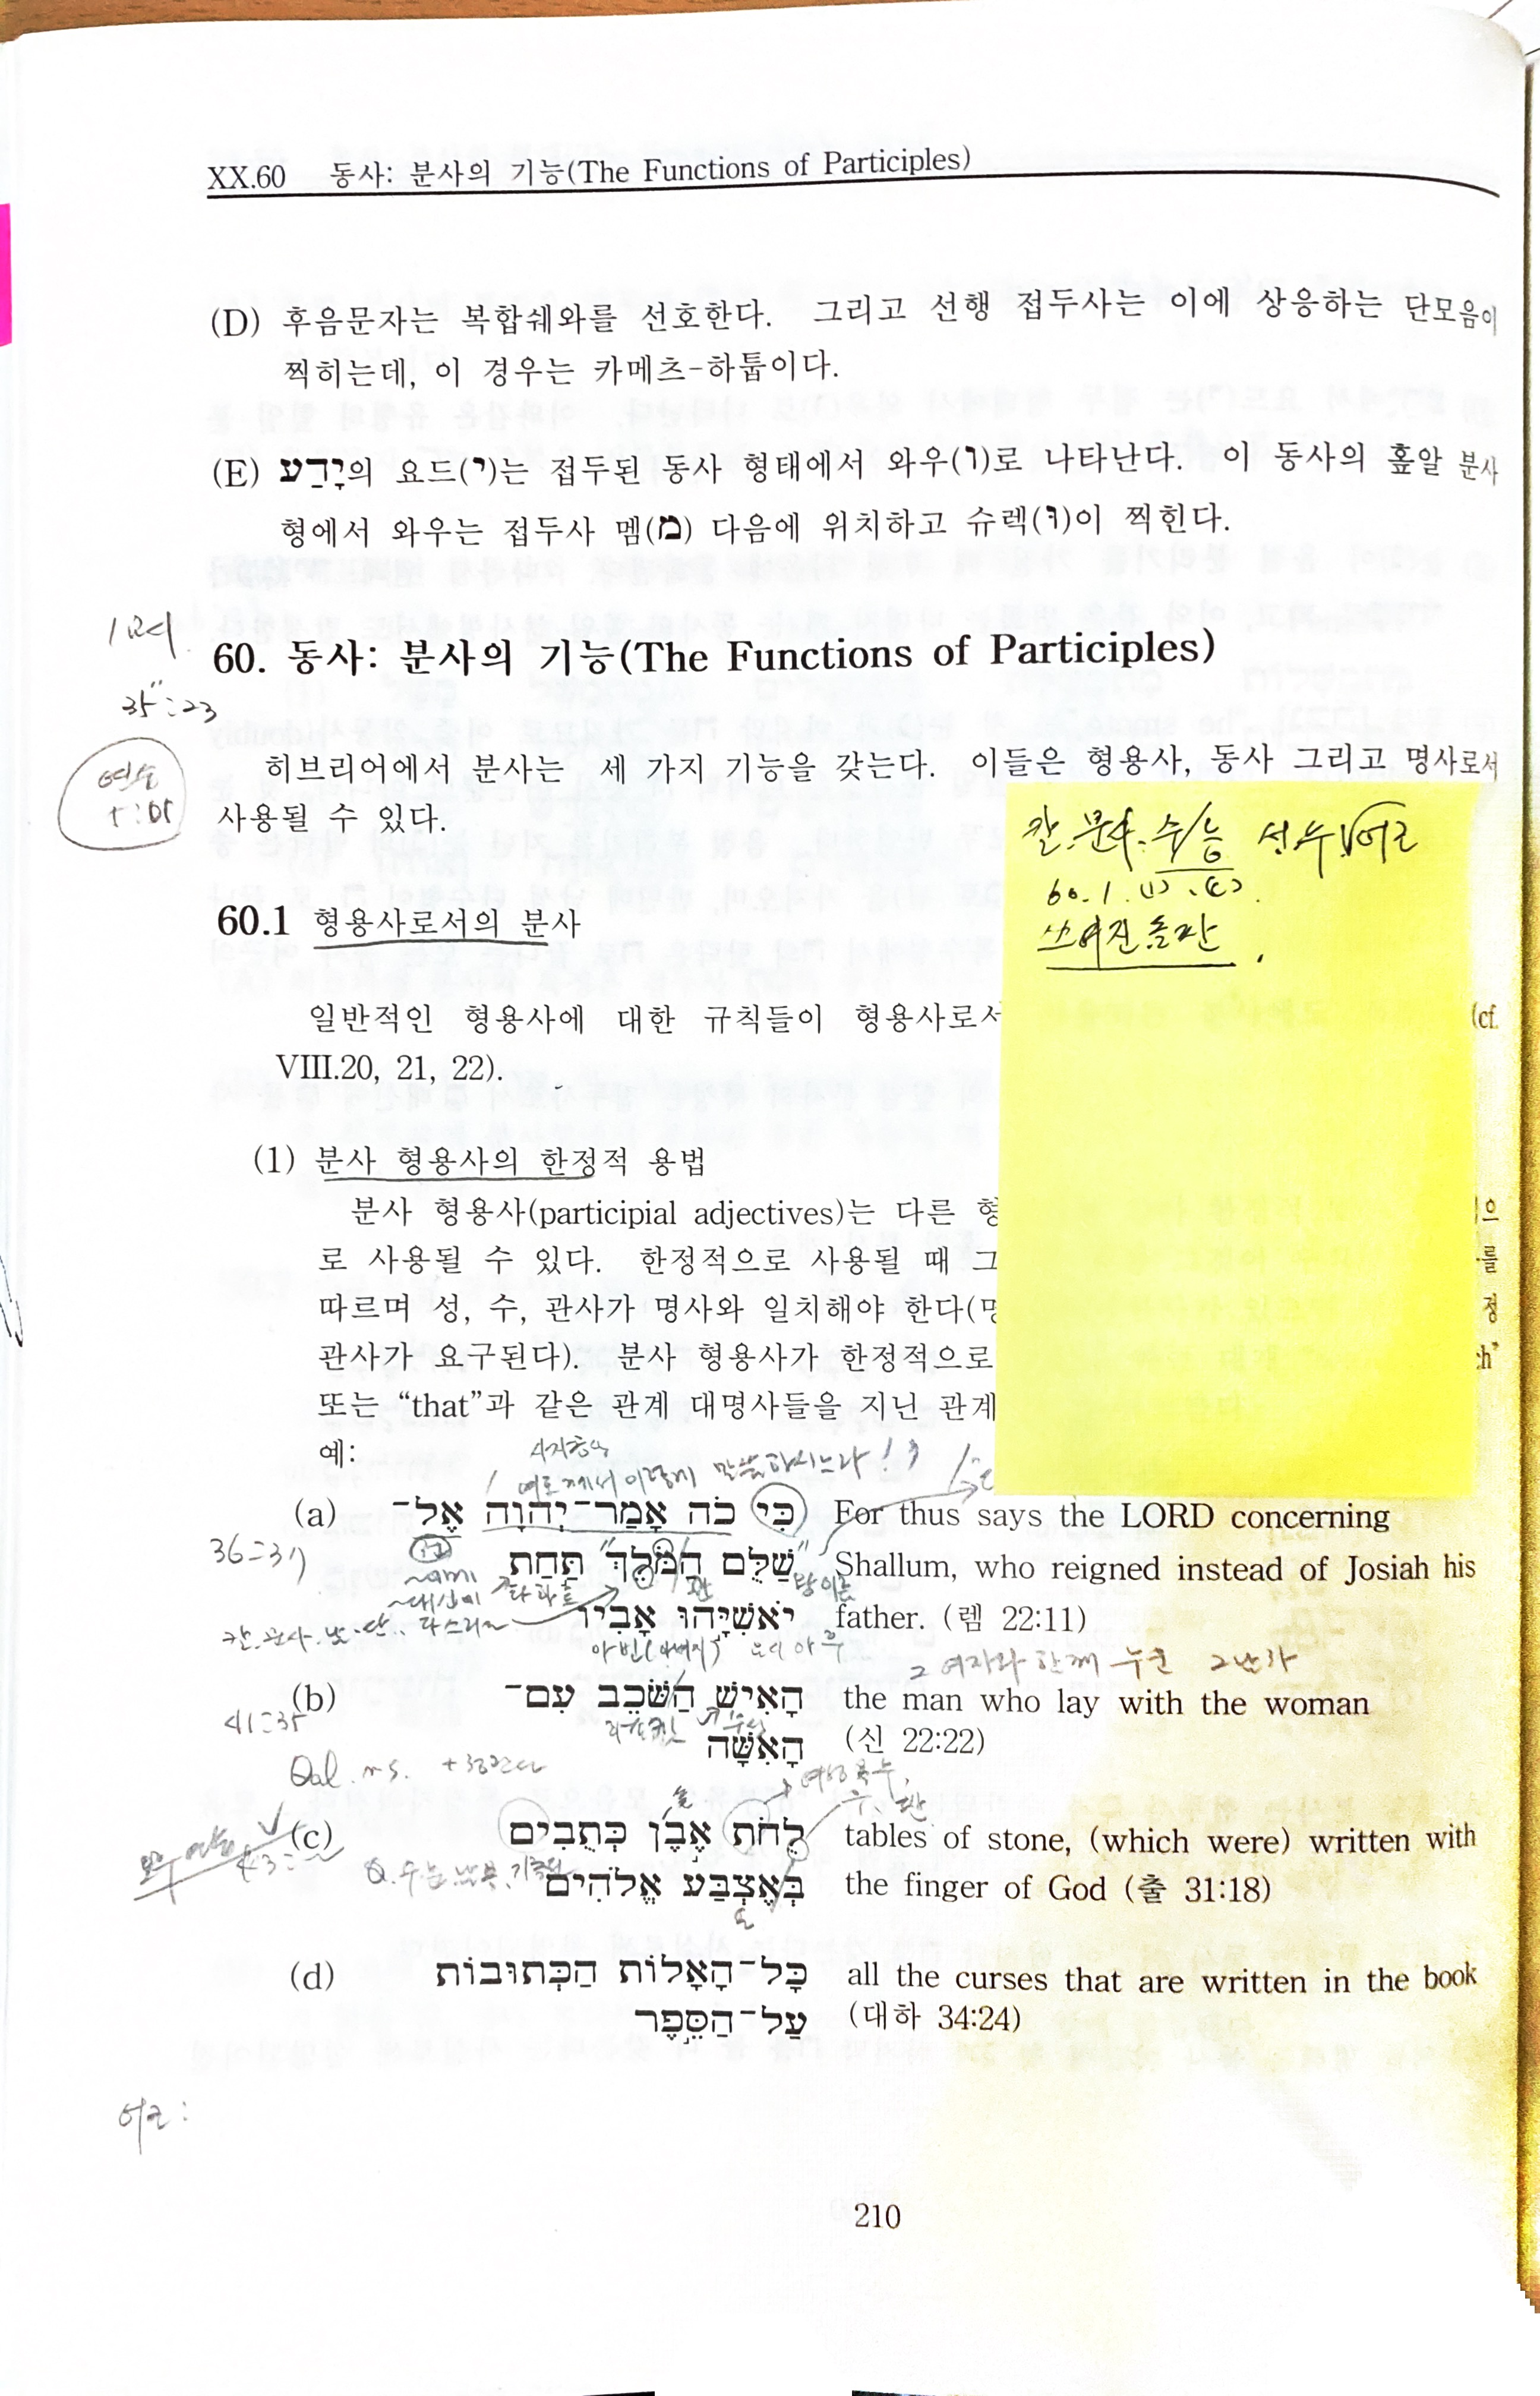 XX.60 동사: 분사의 기능(The Functions of Participles)
(D) 후음문자는 복합쉐와를 선호한다. 그리고 선행 접두사는 이에 상응하는 단모음이
찍히는데, 이 경우는 카메츠-하툽이다.
(E) יָדַע의 요드(י)는 접두된 동사 형태에서 와우(ו)로 나타난다. 이 동사의 홒알 분사
형에서 와우는 접두사 멤(מ) 다음에 위치하고 슈렉(וּ)이 찍힌다.
60. 동사: 분사의 기능(The Functions of Participles)
35:23
히브리어에서 분사는 세 가지 기능을 갖는다. 이들은 형용사, 동사 그리고 명사로서
사용될 수 있다.
칼.분사.수/능 성.수.어근
60.1.(1).(c).
쓰여진 돌판.
60.1 형용사로서의 분사
일반적인 형용사에 대한 규칙들이 형용사로서 (cf.
VIII.20, 21, 22).
(1) 분사 형용사의 한정적 용법
분사 형용사(participial adjectives)는 다른 형 으
로 사용될 수 있다. 한정적으로 사용될 때 그 를
따르며 성, 수, 관사가 명사와 일치해야 한다(명 정
관사가 요구된다). 분사 형용사가 한정적으로 ch”
또는 “that”과 같은 관계 대명사들을 지닌 관계
예:
여호께서 이렇게 말씀하시느라!
(a) כִּי כֹה אָמַר־יְהוָה אֶל־ For thus says the LORD concerning
36:31
שַׁלֻּם הַמֹּלֵךְ תַּחַת Shallum, who reigned instead of Josiah his
יֹאשִׁיָּהוּ אָבִיו father. (렘 22:11)
그 여자와 함께 누운 그 남자
(b) הָאִישׁ הַשֹּׁכֵב עִם־ the man who lay with the woman
41:35
הָאִשָּׁה (신 22:22)
Qal. ms.
(c) לֻחֹת אֶבֶן כְּתֻבִים tables of stone, (which were) written with
בְּאֶצְבַּע אֱלֹהִים the finger of God (출 31:18)
(d) כָּל־הָאָלוֹת הַכְּתוּבוֹת all the curses that are written in the book
עַל־הַסֵּפֶר (대하 34:24)
어근:
210